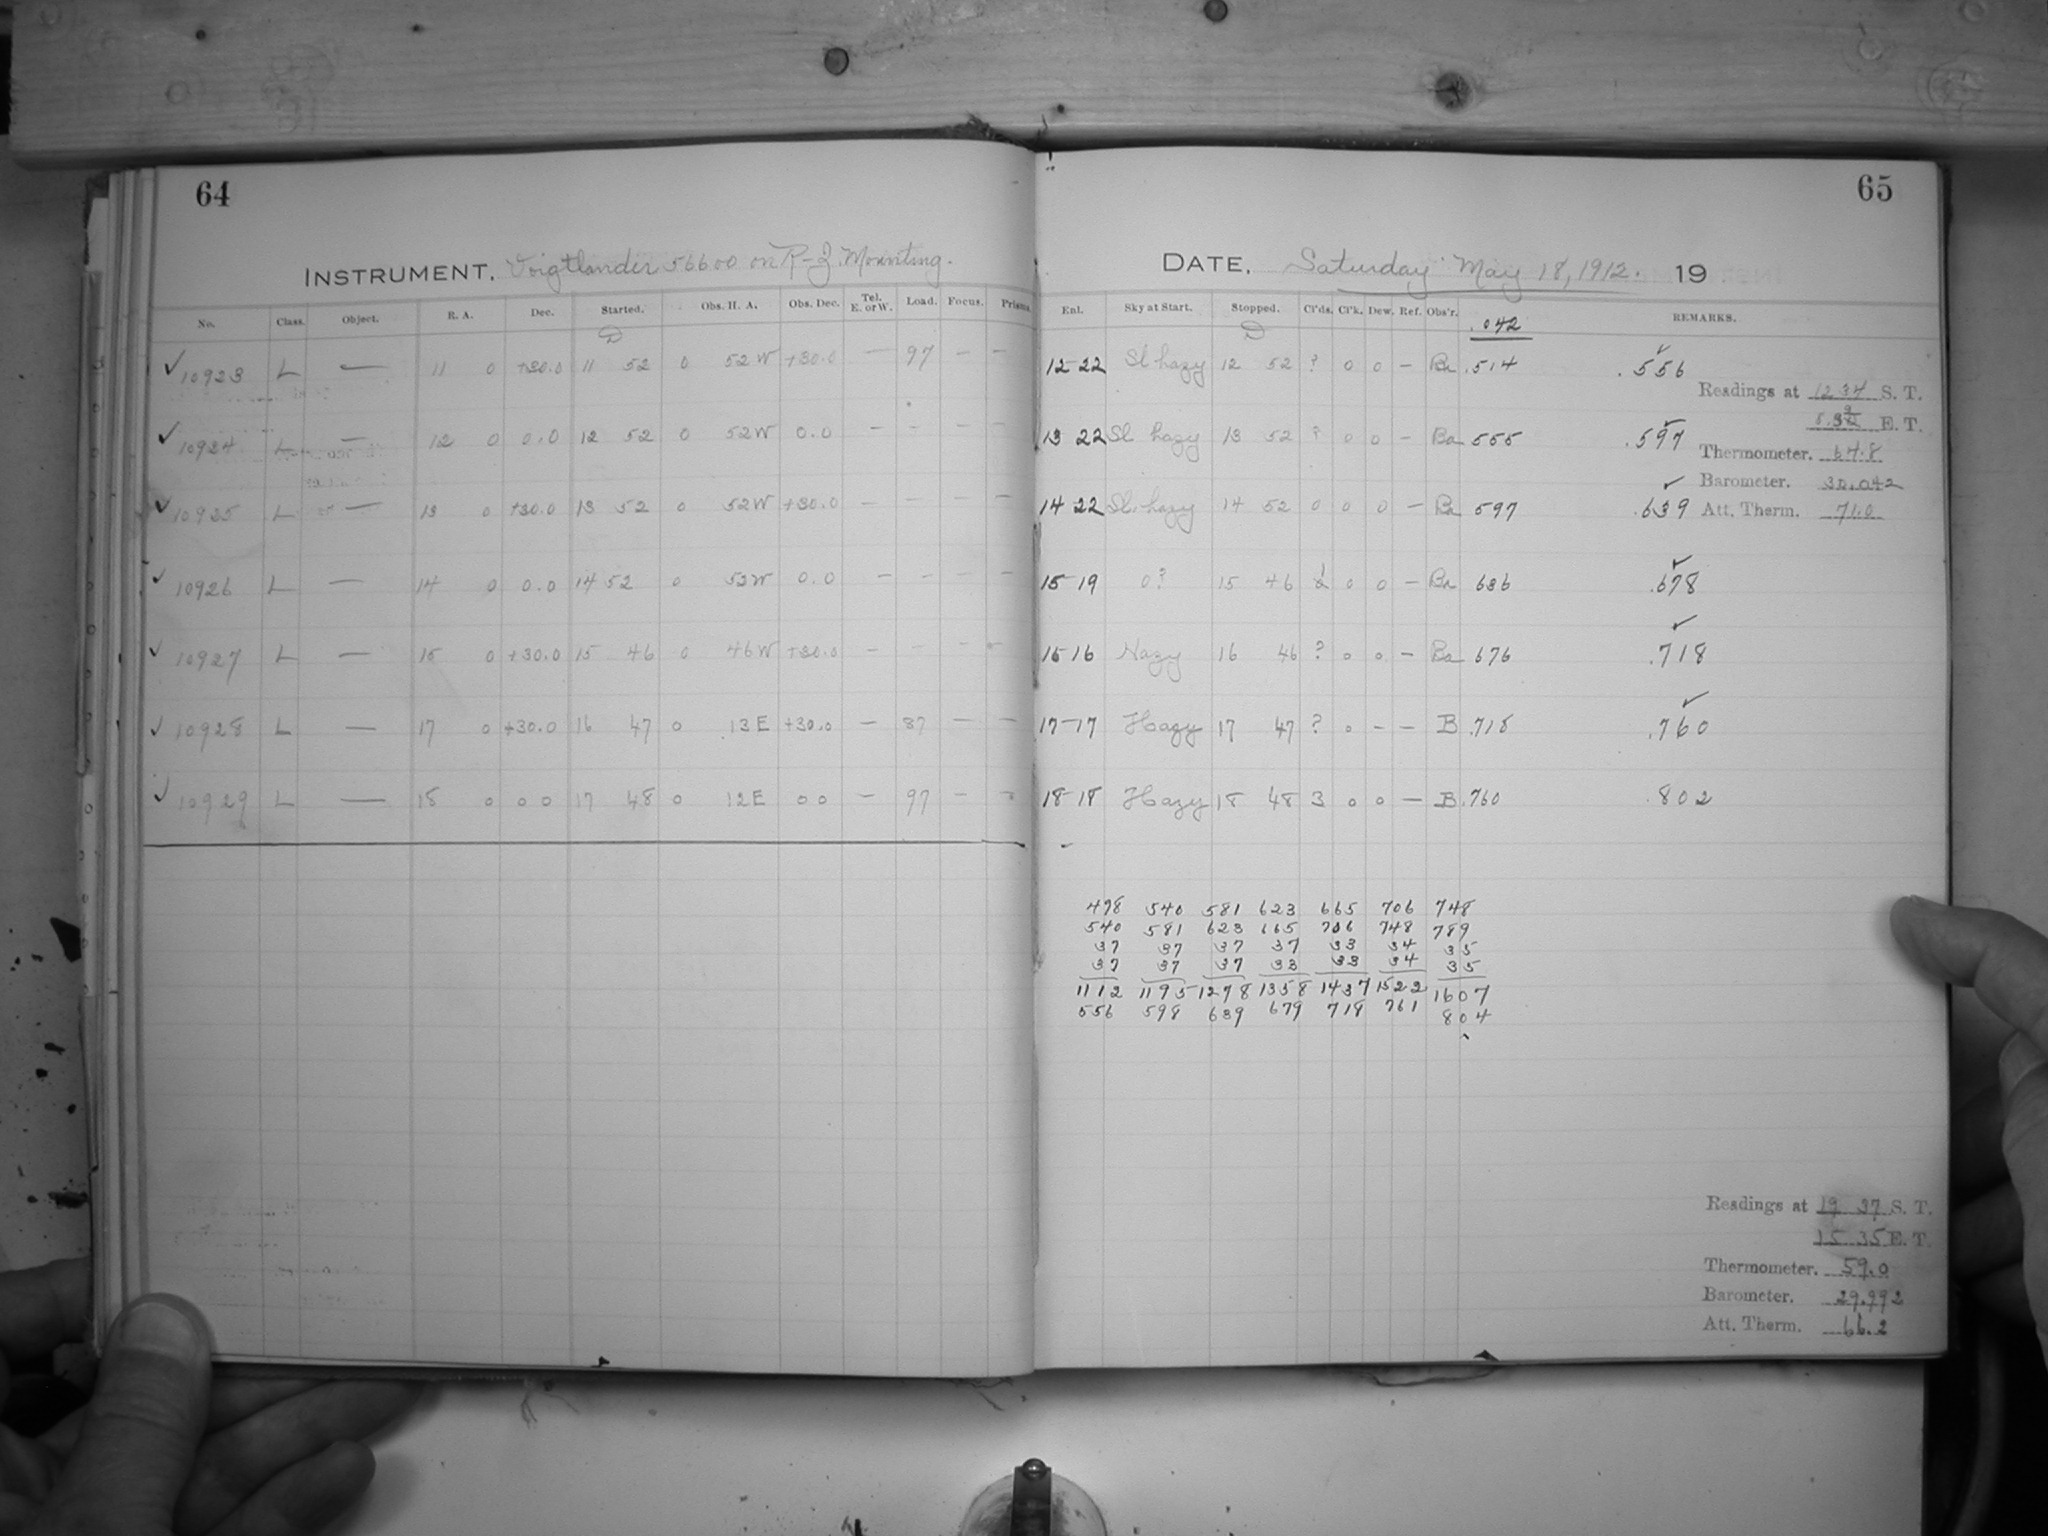 64
INSTRUMENT. Voigtlander 56600 on R-J Mounting.
No. Class. Object. R. A. Dec. Started. Obs. H. A. Obs. Dec. Tel. E. or W. Load. Focus. Prisms.
✓ 10923 L — 11 0 +30.0 11 52 0 52 W +30.0 — 97 — —
✓ 10924 L — 12 0 0.0 12 52 0 52 W 0.0 — — — —
✓ 10925 L — 13 0 +30.0 13 52 0 52 W +30.0 — — — —
✓ 10926 L — 14 0 0.0 14 52 0 52 W 0.0 — — — —
✓ 10927 L — 15 0 +30.0 15 46 0 46 W +30.0 — — — —
✓ 10928 L — 17 0 +30.0 16 47 0 13 E +30.0 — 87 — —
✓ 10929 L — 18 0 0 0 17 48 0 12 E 0 0 — 97 — —
65
DATE. Saturday May 18, 1912. 19
Enl. Sky at Start. Stopped. Cl'ds. Cl'k. Dew. Ref. Obs'r. .042 REMARKS.
12-22 Sl hazy 12 52 ? 0 0 — Ba .514 .556 ✓
Readings at 12 34 S. T.
E. T.
13 22 Sl hazy 13 52 ? 0 0 — Ba 555 .597 ✓
Thermometer. 64.8
Barometer. 30.042
14 22 Sl. hazy 14 52 0 0 0 — Ba 597 .639 ✓
Att. Therm. 71.0
15-19 0? 15 46 0 0 — Ba 636 .678 ✓
15 16 Hazy 16 46 ? 0 0 — Ba 676 .718 ✓
17-17 Hazy 17 47 ? 0 — — B .718 .760 ✓
18-18 Hazy 18 48 3 0 0 — B .760 .802
498 540 581 623 665 706 748
540 581 623 665 706 748 789
37 37 37 37 33 34 35
37 37 37 33 33 34 35
1112 1195 1278 1358 1437 1522 1607
556 598 639 679 718 761 804
Readings at 19 37 S. T.
15 35 E. T.
Thermometer. 59.0
Barometer. 29.992
Att. Therm. 66.2